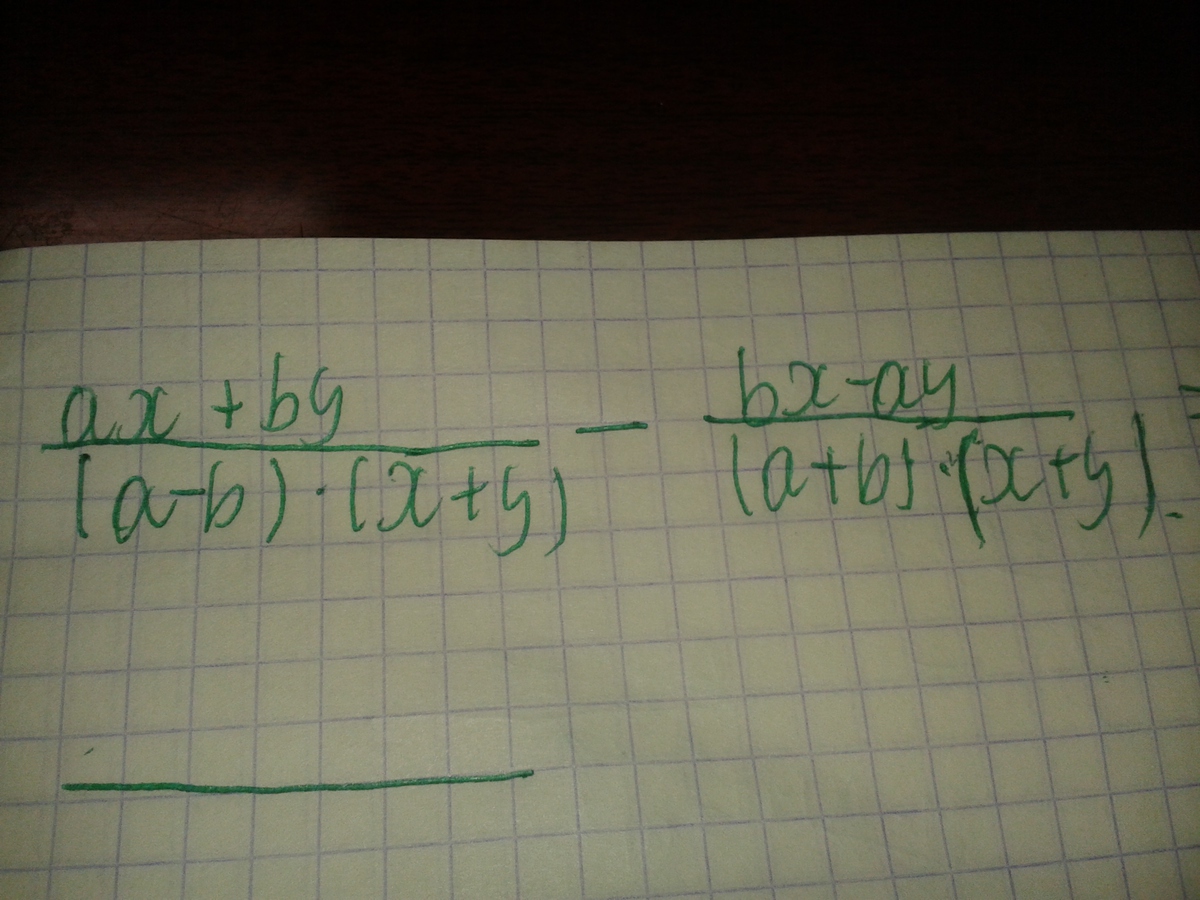 ax + by / (a-b)·(x+y) — bx-ay / (a+b)·(x+y) =